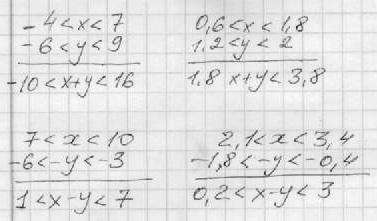 -4<x<7
-6<y<9
-10<x+y<16
0,6<x<1,8
1,2<y<2
1,8 x+y<3,8
7<x<10
-6<-y<-3
1<x-y<7
2,1<x<3,4
-1,8<-y<-0,4
0,2<x-y<3